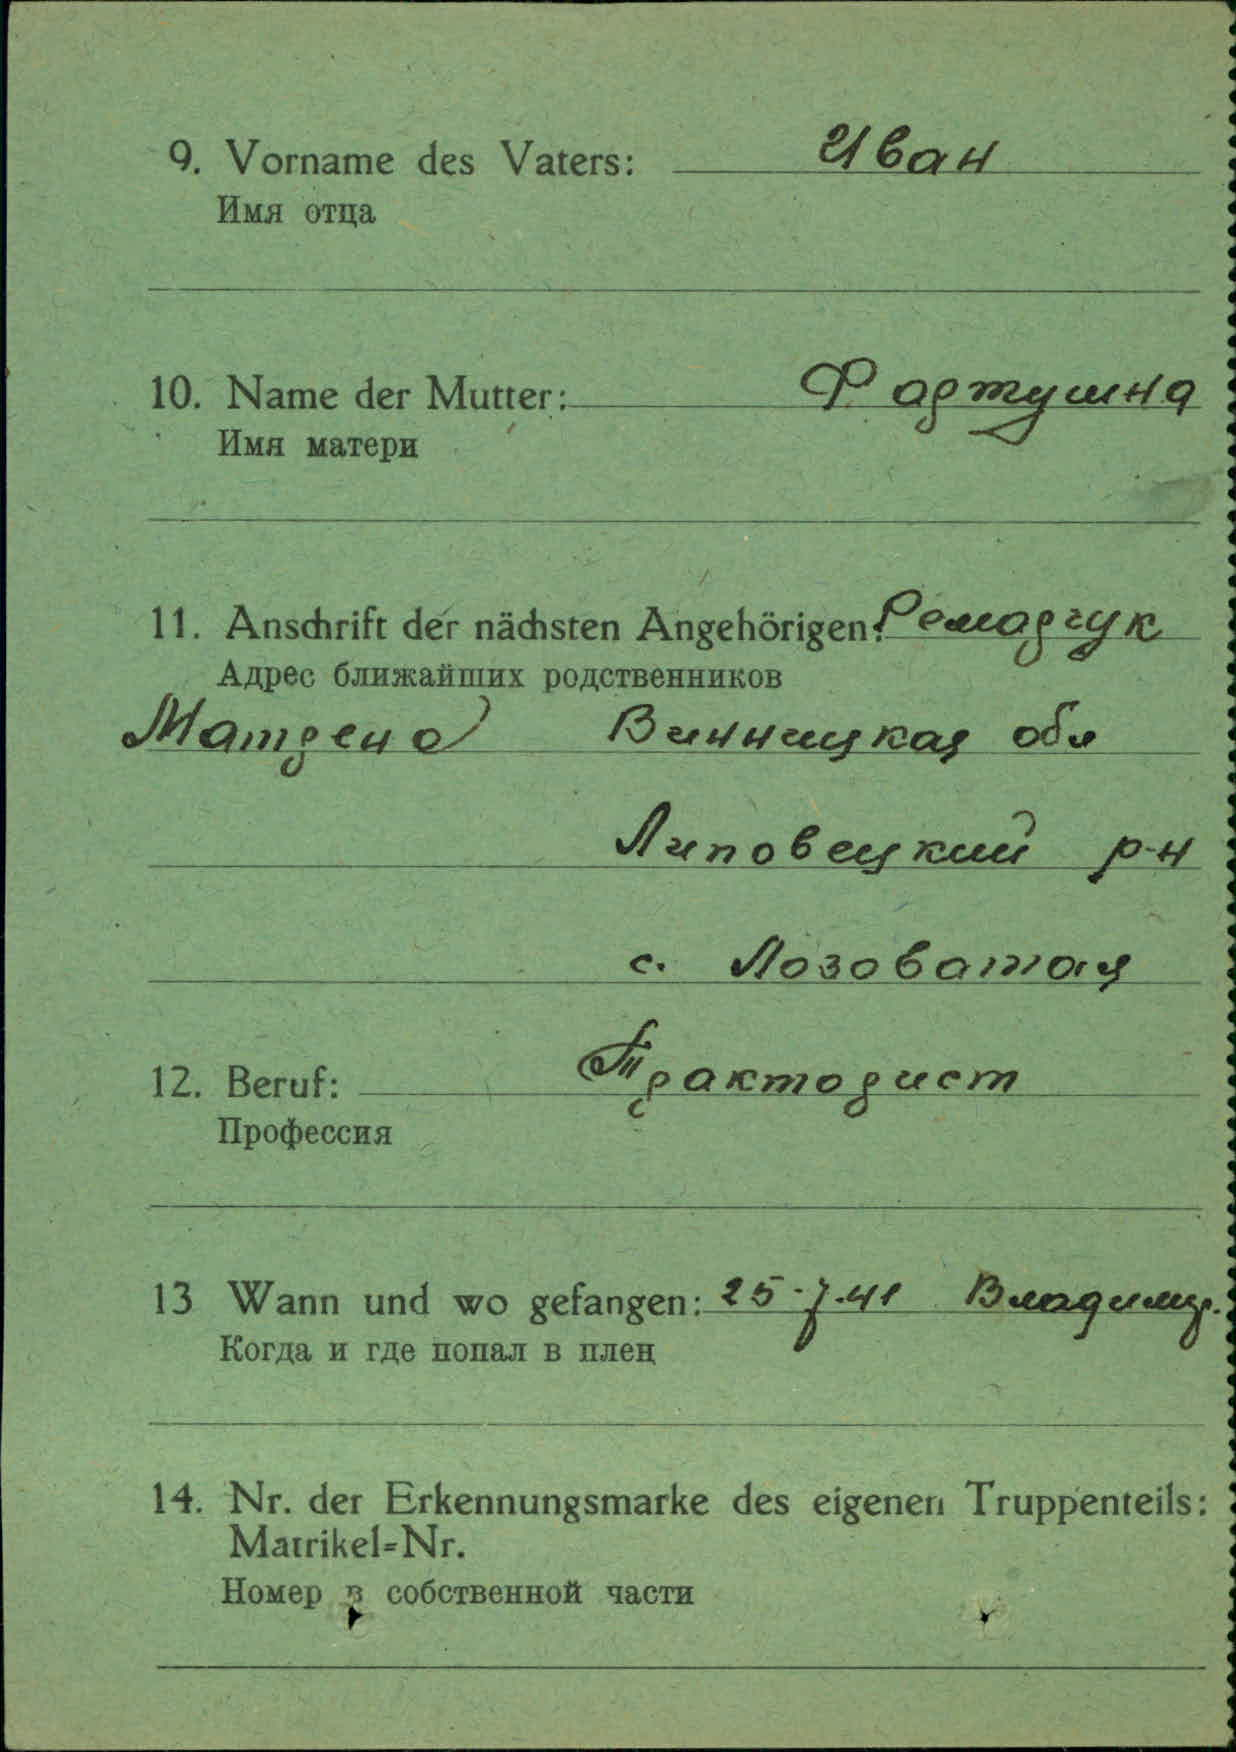 9. Vorname des Vaters: Иван
Имя отца
10. Name der Mutter: Фартушна
Имя матери
11. Anschrift der nächsten Angehörigen: Ремарчук
Адрес ближайших родственников
Матрена Винницкая обл
Липовецкий р-н
с. Лозоватая
12. Beruf: Тракторист
Профессия
13 Wann und wo gefangen: 25.7.41 Владимир.
Когда и где попал в плен
14. Nr. der Erkennungsmarke des eigenen Truppenteils:
Matrikel=Nr.
Номер в собственной части